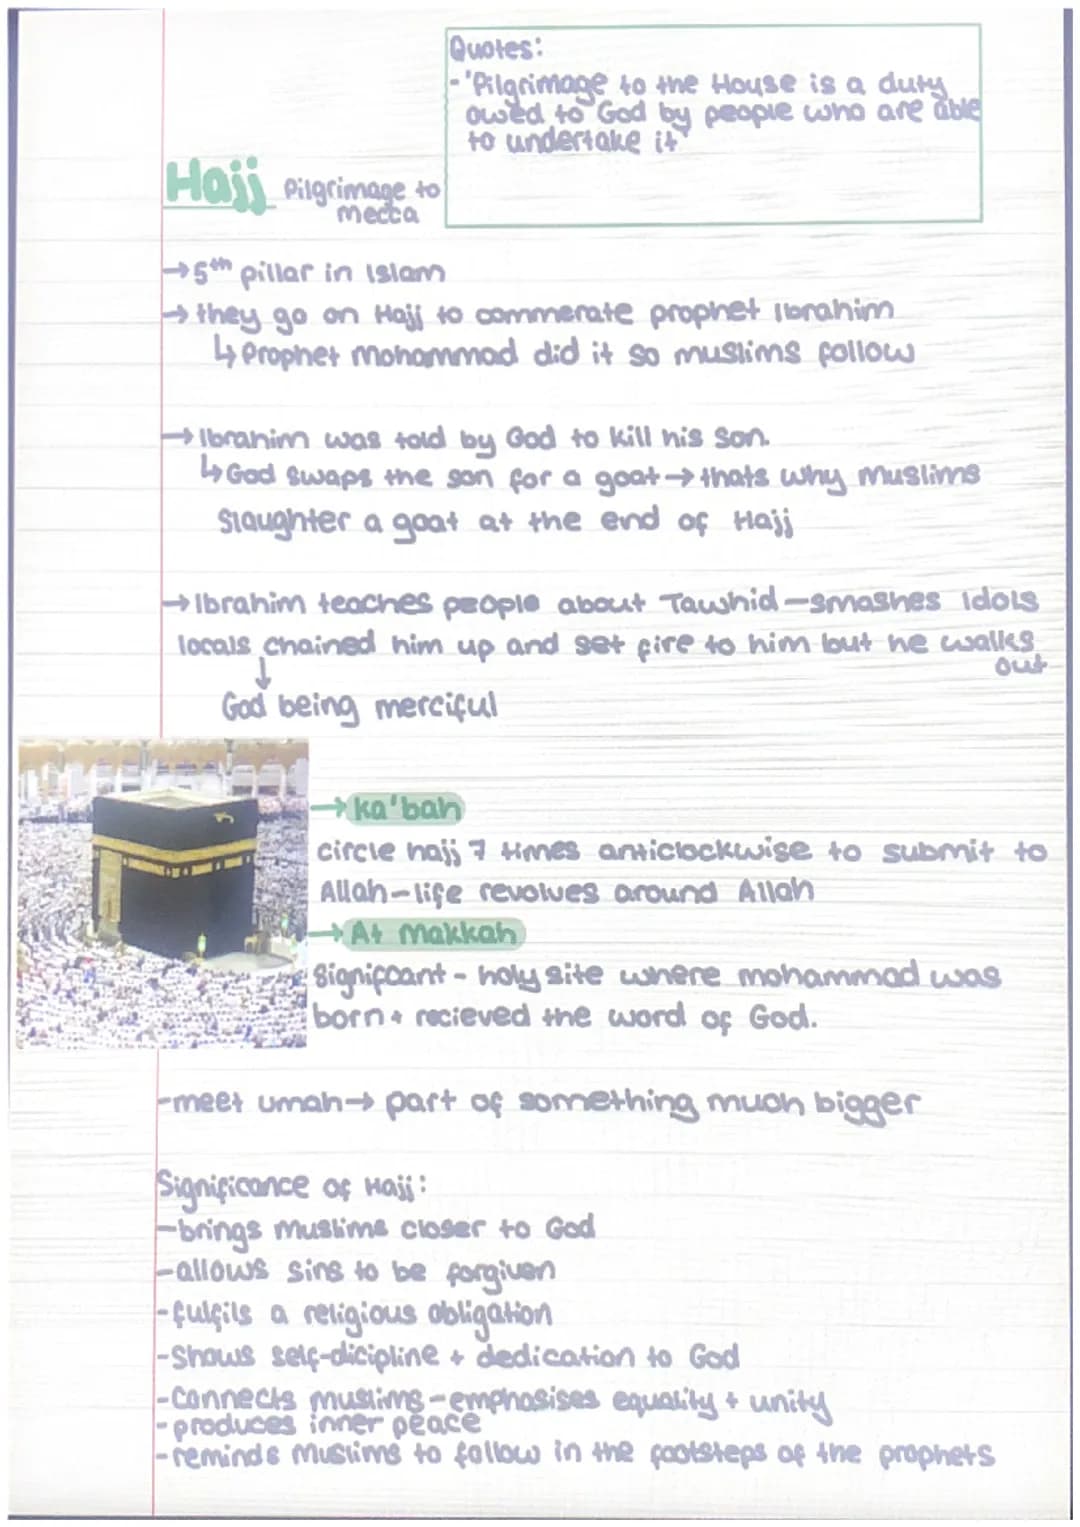 Quotes:
- 'Pilgrimage to the House is a duty
owed to God by people who are able
to undertake it'
Hajj Pilgrimage to
mecca
→5th pillar in Islam
→ they go on Hajj to commerate prophet Ibrahim
↳ Prophet Mohammad did it so muslims follow
→ Ibrahim was told by God to kill his son.
↳ God swaps the son for a goat → thats why Muslims
slaughter a goat at the end of Hajj
→ Ibrahim teaches people about Tawhid - smashes idols
locals chained him up and set fire to him but he walks
out
↓
God being merciful
→ ka'bah
circle hajj 7 times anticlockwise to submit to
Allah - life revolves around Allah
→ At Makkah
significant - holy site where mohammad was
born + recieved the word of God.
-meet umah → part of something much bigger
Significance of Hajj:
-brings muslims closer to God
-allows sins to be forgiven
-fulfils a religious obligation
-Shows self-dicipline + dedication to God
-Connects muslims - emphasises equality + unity
-produces inner peace
-reminds Muslims to follow in the footsteps of the prophets